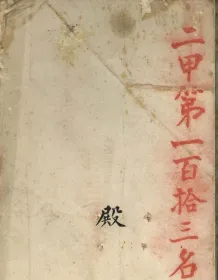 二甲第一百拾三名
殿